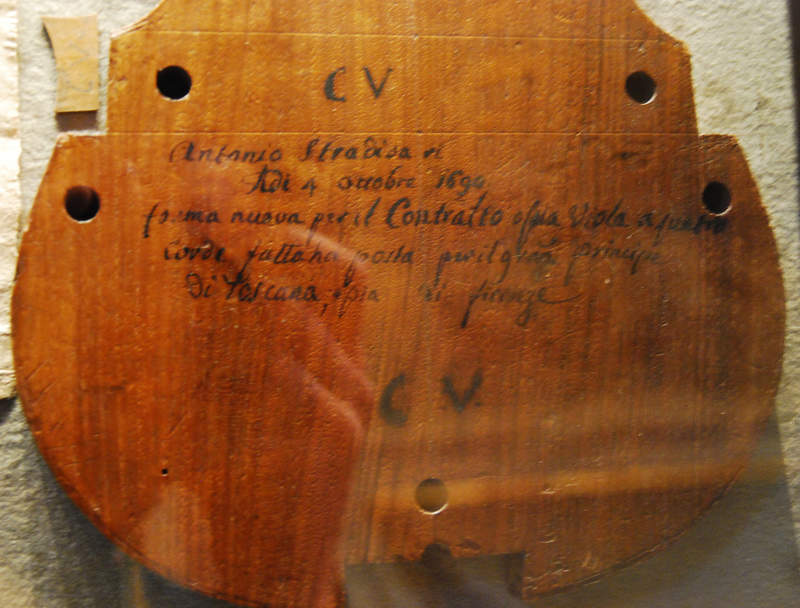 C V
Antonio Stradivari
Adi 4 ottobre 1690
forma nuova per il Contralto ossia Viola a quatro
Corde fatta ha posta per il gran principe
Di Toscana, ossia di firenze
C V